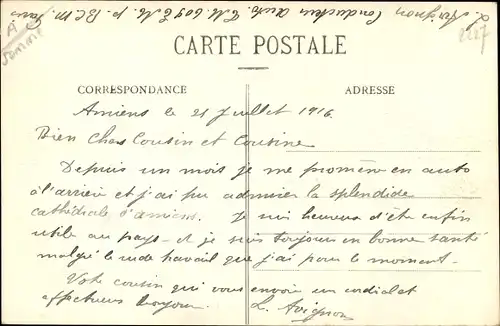 L. Avignon Conducteur Auto. T.M. 609 E.M. p. B.C.M. Paris
A
Somme
CARTE POSTALE
CORRESPONDANCE
ADRESSE
Amiens le 21 Juillet 1916
Bien Chers Cousin et Cousine
Depuis un mois je me promène en auto
à l'arrière et j'ai pu admirer la splendide
cathédrale d'amiens. Je suis heureux d'être enfin
utile au pays - et je suis toujours en bonne santé
malgré le rude travail que j'ai pour le moment.
Votre cousin qui vous envoie un cordial et
affectueux bonjour.
L. Avignon